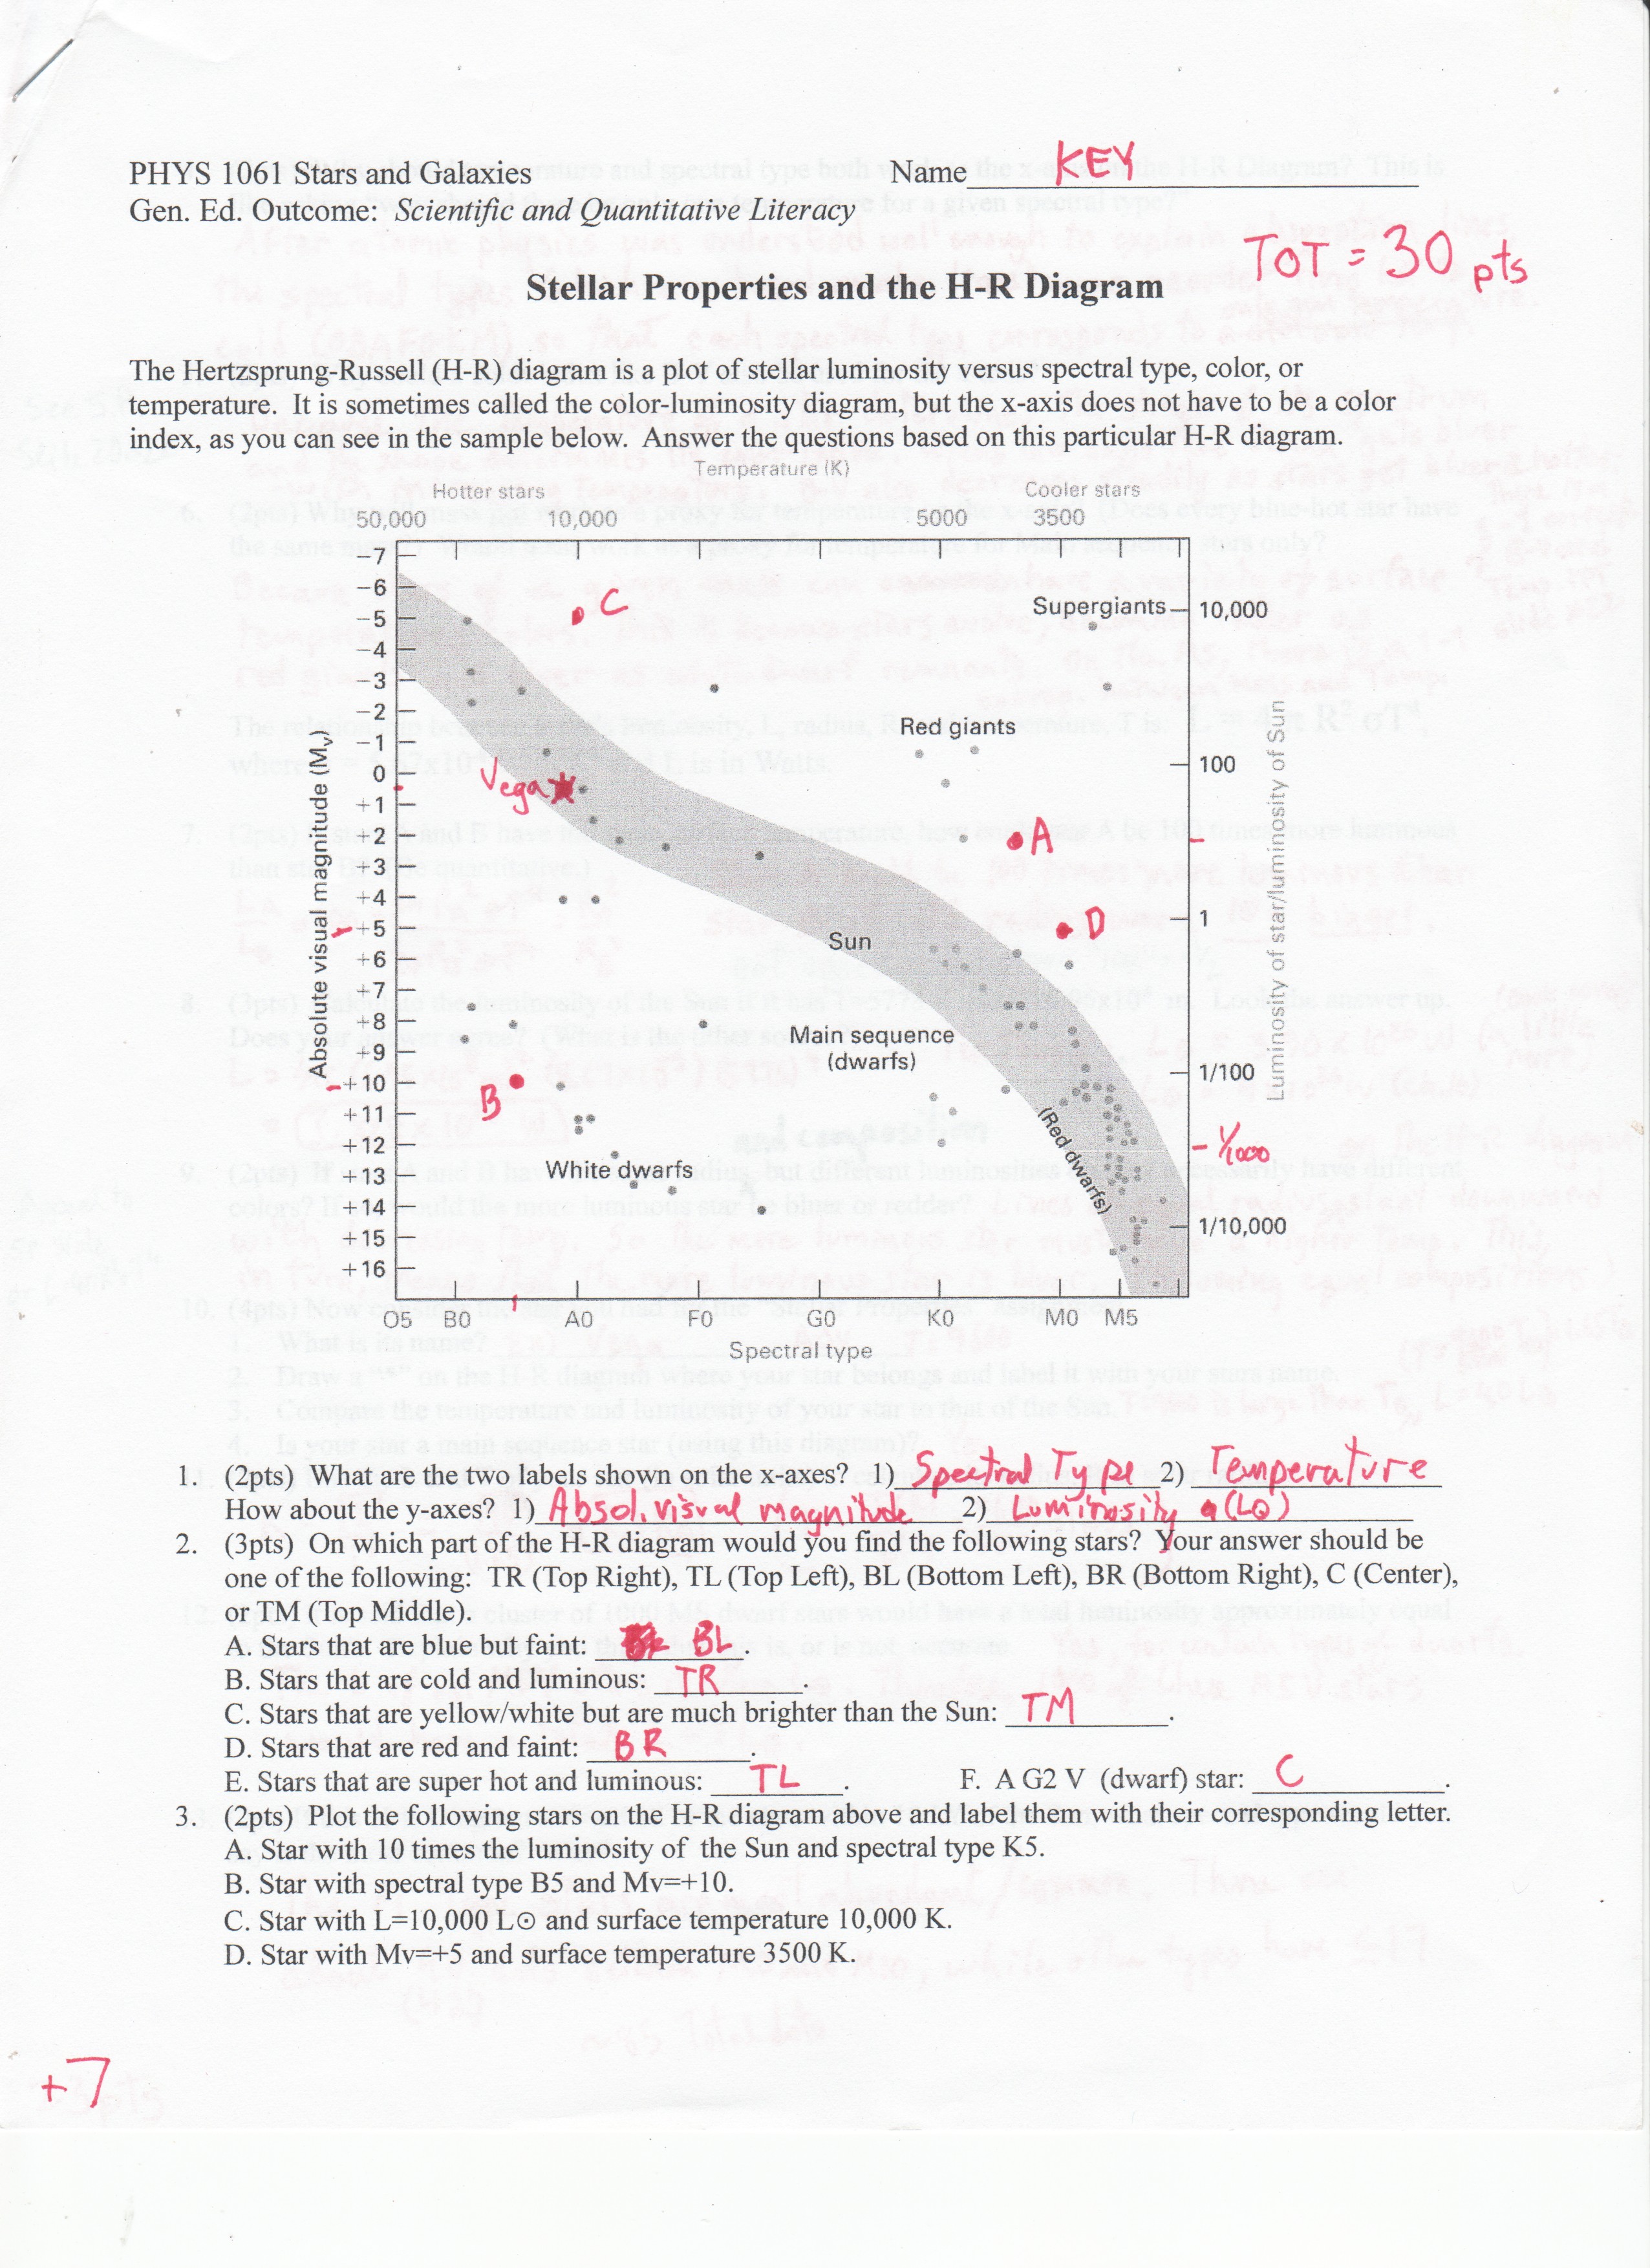 PHYS 1061 Stars and Galaxies Name KEY
Gen. Ed. Outcome: Scientific and Quantitative Literacy
TOT = 30 pts
Stellar Properties and the H-R Diagram
The Hertzsprung-Russell (H-R) diagram is a plot of stellar luminosity versus spectral type, color, or
temperature. It is sometimes called the color-luminosity diagram, but the x-axis does not have to be a color
index, as you can see in the sample below. Answer the questions based on this particular H-R diagram.
Temperature (K)
Hotter stars Cooler stars
50,000 10,000 5000 3500
Absolute visual magnitude (Mv)
−7
−6
−5
−4
−3
−2
−1
0
+1
+2
+3
+4
+5
+6
+7
+8
+9
+10
+11
+12
+13
+14
+15
+16
C
Supergiants
Red giants
Vega
A
D
Sun
Main sequence
(dwarfs)
B
(Red dwarfs)
White dwarfs
10,000
100
1
1/100
1/1000
1/10,000
Luminosity of star/luminosity of Sun
O5 B0 A0 F0 G0 K0 M0 M5
Spectral type
1. (2pts) What are the two labels shown on the x-axes? 1) Spectral Type 2) Temperature
How about the y-axes? 1) Absol. visual magnitude 2) Luminosity (L⊙)
2. (3pts) On which part of the H-R diagram would you find the following stars? Your answer should be
one of the following: TR (Top Right), TL (Top Left), BL (Bottom Left), BR (Bottom Right), C (Center),
or TM (Top Middle).
A. Stars that are blue but faint: BL.
B. Stars that are cold and luminous: TR.
C. Stars that are yellow/white but are much brighter than the Sun: TM.
D. Stars that are red and faint: BR.
E. Stars that are super hot and luminous: TL. F. A G2 V (dwarf) star: C.
3. (2pts) Plot the following stars on the H-R diagram above and label them with their corresponding letter.
A. Star with 10 times the luminosity of the Sun and spectral type K5.
B. Star with spectral type B5 and Mv=+10.
C. Star with L=10,000 L⊙ and surface temperature 10,000 K.
D. Star with Mv=+5 and surface temperature 3500 K.
+7